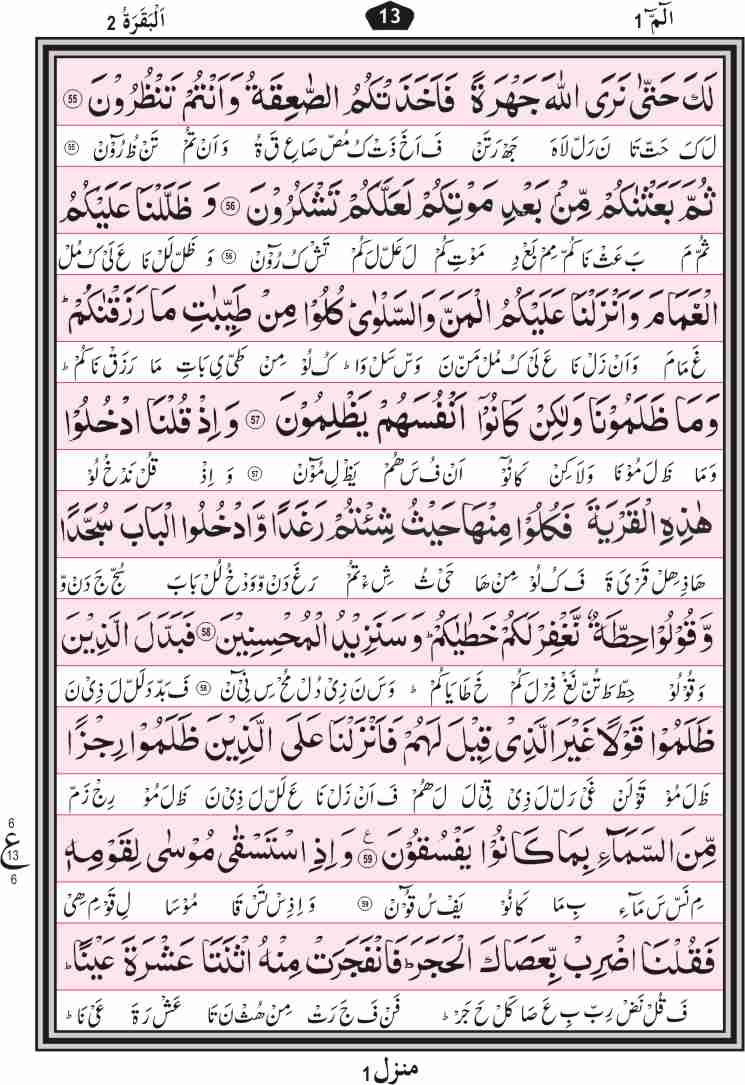 الٓمّٓ 1
13
اَلْبَقَرَةُ 2
لَكَ حَتّٰى نَرَى اللّٰهَ جَهْرَةً فَاَخَذَتْكُمُ الصّٰعِقَةُ وَاَنْتُمْ تَنْظُرُوْنَ ۝55
لَ كَ حَتْ تَا نَ رَلْ لَا هَ جَهْ رَتَنْ فَ اَ خَ ذَتْ كُ مُصْ صَا عِ قَ ةُ وَ اَنْ تُمْ تَنْ ظُ رُوْٓنْ ۝55
ثُمَّ بَعَثْنٰكُمْ مِّنْۢ بَعْدِ مَوْتِكُمْ لَعَلَّكُمْ تَشْكُرُوْنَ ۝56 وَ ظَلَّلْنَا عَلَيْكُمُ
ثُمْ مَ بَ عَثْ نَا كُمْ مِمْ بَعْ دِ مَوْ تِ كُمْ لَ عَلْ لَ كُمْ تَشْ كُ رُوْٓنْ ۝56 وَ ظَلْ لَلْ نَا عَ لَىْ كُ مُلْ
الْغَمَامَ وَاَنْزَلْنَا عَلَيْكُمُ الْمَنَّ وَالسَّلْوٰىؕ كُلُوْا مِنْ طَيِّبٰتِ مَا رَزَقْنٰكُمْؕ
غَ مَا مَ وَ اَنْ زَلْ نَا عَ لَىْ كُ مُلْ مَنْ نَ وَسْ سَلْ وَاؕ كُ لُوْ مِنْ طَىْ ىِ بَا تِ مَا رَ زَقْ نَا كُمْؕ
وَمَا ظَلَمُوْنَا وَلٰكِنْ كَانُوْٓا اَنْفُسَهُمْ يَظْلِمُوْنَ ۝57 وَاِذْ قُلْنَا ادْخُلُوْا
وَ مَا ظَ لَ مُوْ نَا وَ لَا كِنْ كَا نُوْٓ اَنْ فُ سَ هُمْ يَظْ لِ مُوْٓنْ ۝57 وَ اِذْ قُلْ نَدْ خُ لُوْ
هٰذِهِ الْقَرْيَةَ فَكُلُوْا مِنْهَا حَيْثُ شِئْتُمْ رَغَدًا وَّادْخُلُوا الْبَابَ سُجَّدًا
هَا ذِ هِلْ قَرْ ىَ ةَ فَ كُ لُوْ مِنْ هَا حَىْ ثُ شِءْ تُمْ رَ غَ دَنْ وَّوَدْ خُ لُلْ بَا بَ سُجْ جَ دَنْ وَّ
وَّقُوْلُوْا حِطَّةٌ نَّغْفِرْ لَكُمْ خَطٰيٰكُمْؕ وَسَنَزِيْدُ الْمُحْسِنِيْنَ ۝58 فَبَدَّلَ الَّذِيْنَ
وَ قُوْ لُوْ حِطْ طَ تُنْ نَغْ فِرْ لَ كُمْ خَ طَا يَا كُمْؕ وَ سَ نَ زِىْ دُ لْ مُحْ سِ نِىْٓ نْ ۝58 فَ بَدْ دَ لَلْ لَ ذِىْ نَ
ظَلَمُوْا قَوْلًا غَيْرَ الَّذِىْ قِيْلَ لَهُمْ فَاَنْزَلْنَا عَلَى الَّذِيْنَ ظَلَمُوْا رِجْزًا
ظَ لَ مُوْ قَوْ لَنْ غَىْ رَلْ لَ ذِىْ قِىْ لَ لَ هُمْ فَ اَنْ زَلْ نَا عَ لَلْ لَ ذِىْ نَ ظَ لَ مُوْ رِجْ زَمْ
مِّنَ السَّمَآءِ بِمَا كَانُوْا يَفْسُقُوْنَ ۝59 ع وَاِذِ اسْتَسْقٰى مُوْسٰى لِقَوْمِهٖ
مِ نَسْ سَ مَآ ءِ بِ مَا كَا نُوْ يَفْ سُ قُوْٓنْ ۝59 وَ اِ ذِسْ تَسْ قَا مُوْ سَا لِ قَوْ مِ هِىْ
6
ع 13
6
فَقُلْنَا اضْرِبْ بِّعَصَاكَ الْحَجَرَؕ فَانْفَجَرَتْ مِنْهُ اثْنَتَا عَشْرَةَ عَيْنًاؕ
فَ قُلْ نَضْ رِبْ بِ عَ صَا كَلْ حَ جَرْؕ فَنْ فَ جَ رَتْ مِنْ هُثْ نَ تَا عَشْ رَ ةَ عَىْ نَاؕ
منزل 1